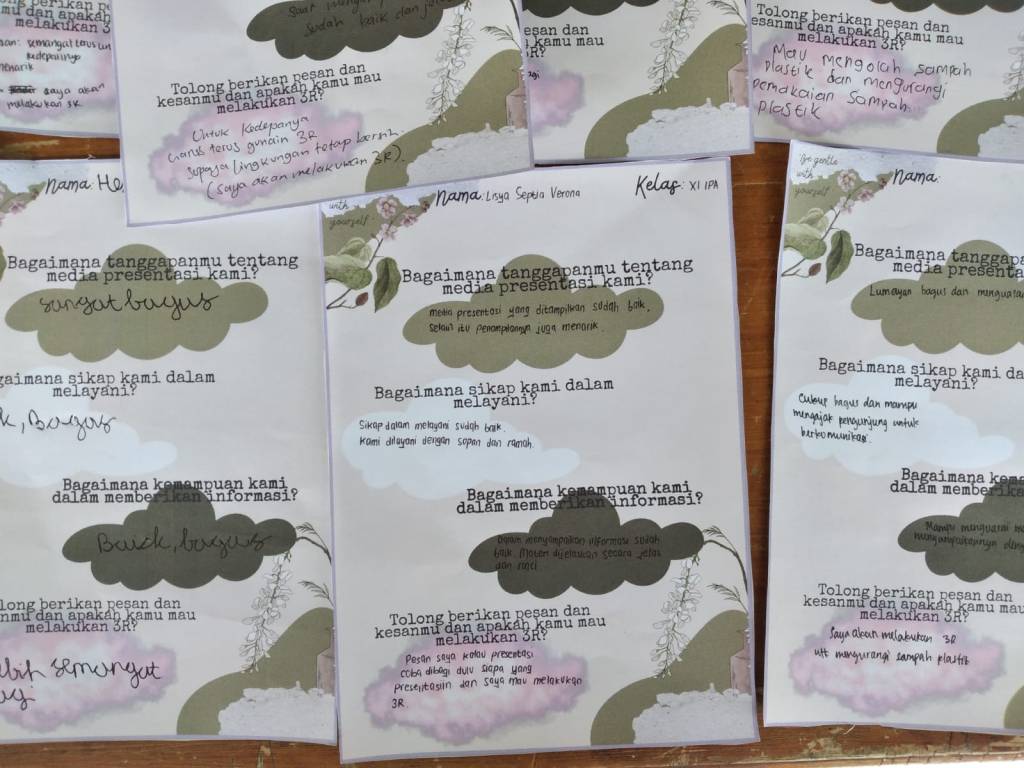 dan: semangat terus untuk
kedepannya
menarik
saya akan
melakukan 3R
sudah baik dan jelas
Tolong berikan pesan dan
kesanmu dan apakah kamu mau
melakukan 3R?
Untuk Kedepanya
harus terus gunain 3R
supaya lingkungan tetap bersih.
(saya akan melakukan 3R).
kamu mau
3R?
Tolong berikan pesan dan
kesanmu dan apakah kamu mau
melakukan 3R?
Mau mengolah sampah
plastik dan mengurangi
pemakaian sampah
plastik
Nama: He
Bagaimana tanggapanmu tentang
media presentasi kami?
sangat bagus
gaimana sikap kami dalam
melayani?
k, Bagus
Bagaimana kemampuan kami
dalam memberikan informasi?
Baick, bagus
long berikan pesan dan
nmu dan apakah kamu mau
melakukan 3R?
ebih semangat
with
yourself
Nama: Lisya Septia Verona
Kelas: XI IPA
Bagaimana tanggapanmu tentang
media presentasi kami?
media presentasi yang ditampilkan sudah baik,
Selain itu penampilannya juga menarik.
Bagaimana sikap kami dalam
melayani?
Sikap dalam melayani sudah baik.
Kami dilayani dengan sopan dan ramah.
Bagaimana kemampuan kami
dalam memberikan informasi?
Dalam menyampaikan informasi sudah
baik. Materi dijelaskan secara jelas
dan rinci
Tolong berikan pesan dan
kesanmu dan apakah kamu mau
melakukan 3R?
Pesan saya kalau presentasi
coba dibagi dulu siapa yang
presentasiin dan saya mau melakukan
3R.
be gentle
with
yourself
Nama:
Bagaimana tanggapanmu
media prese
Lumayan bagus dan menguasai
Bagaimana sikap kami dalam
melayani?
Cukup bagus dan mampu
mengajak pengunjung untuk
berkomunikasi.
Bagaimana kema
dalam memberik
Mampu menguasai
menyampaikannya
Tolong berikan pesan dan
kesanmu dan apakah kamu mau
melakukan 3R?
Saya akan melakukan 3R
utk mengurangi sampah plastik